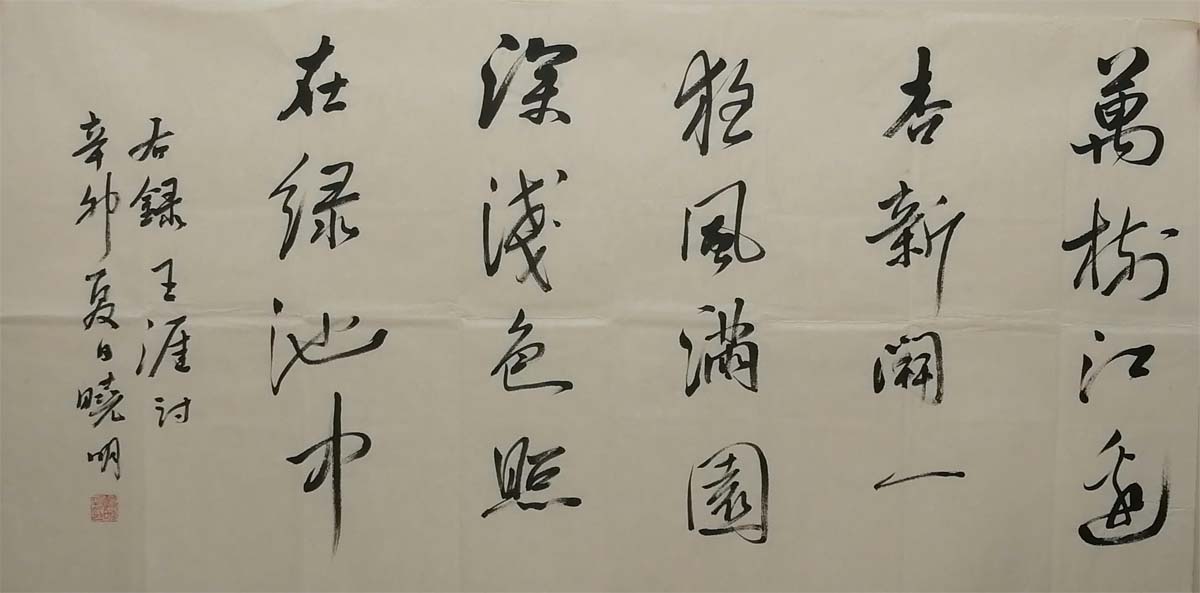 萬樹江邊
杏新開一
狂風滿園
深淺色照
在绿池中
右録王涯討
辛卯夏日曉明